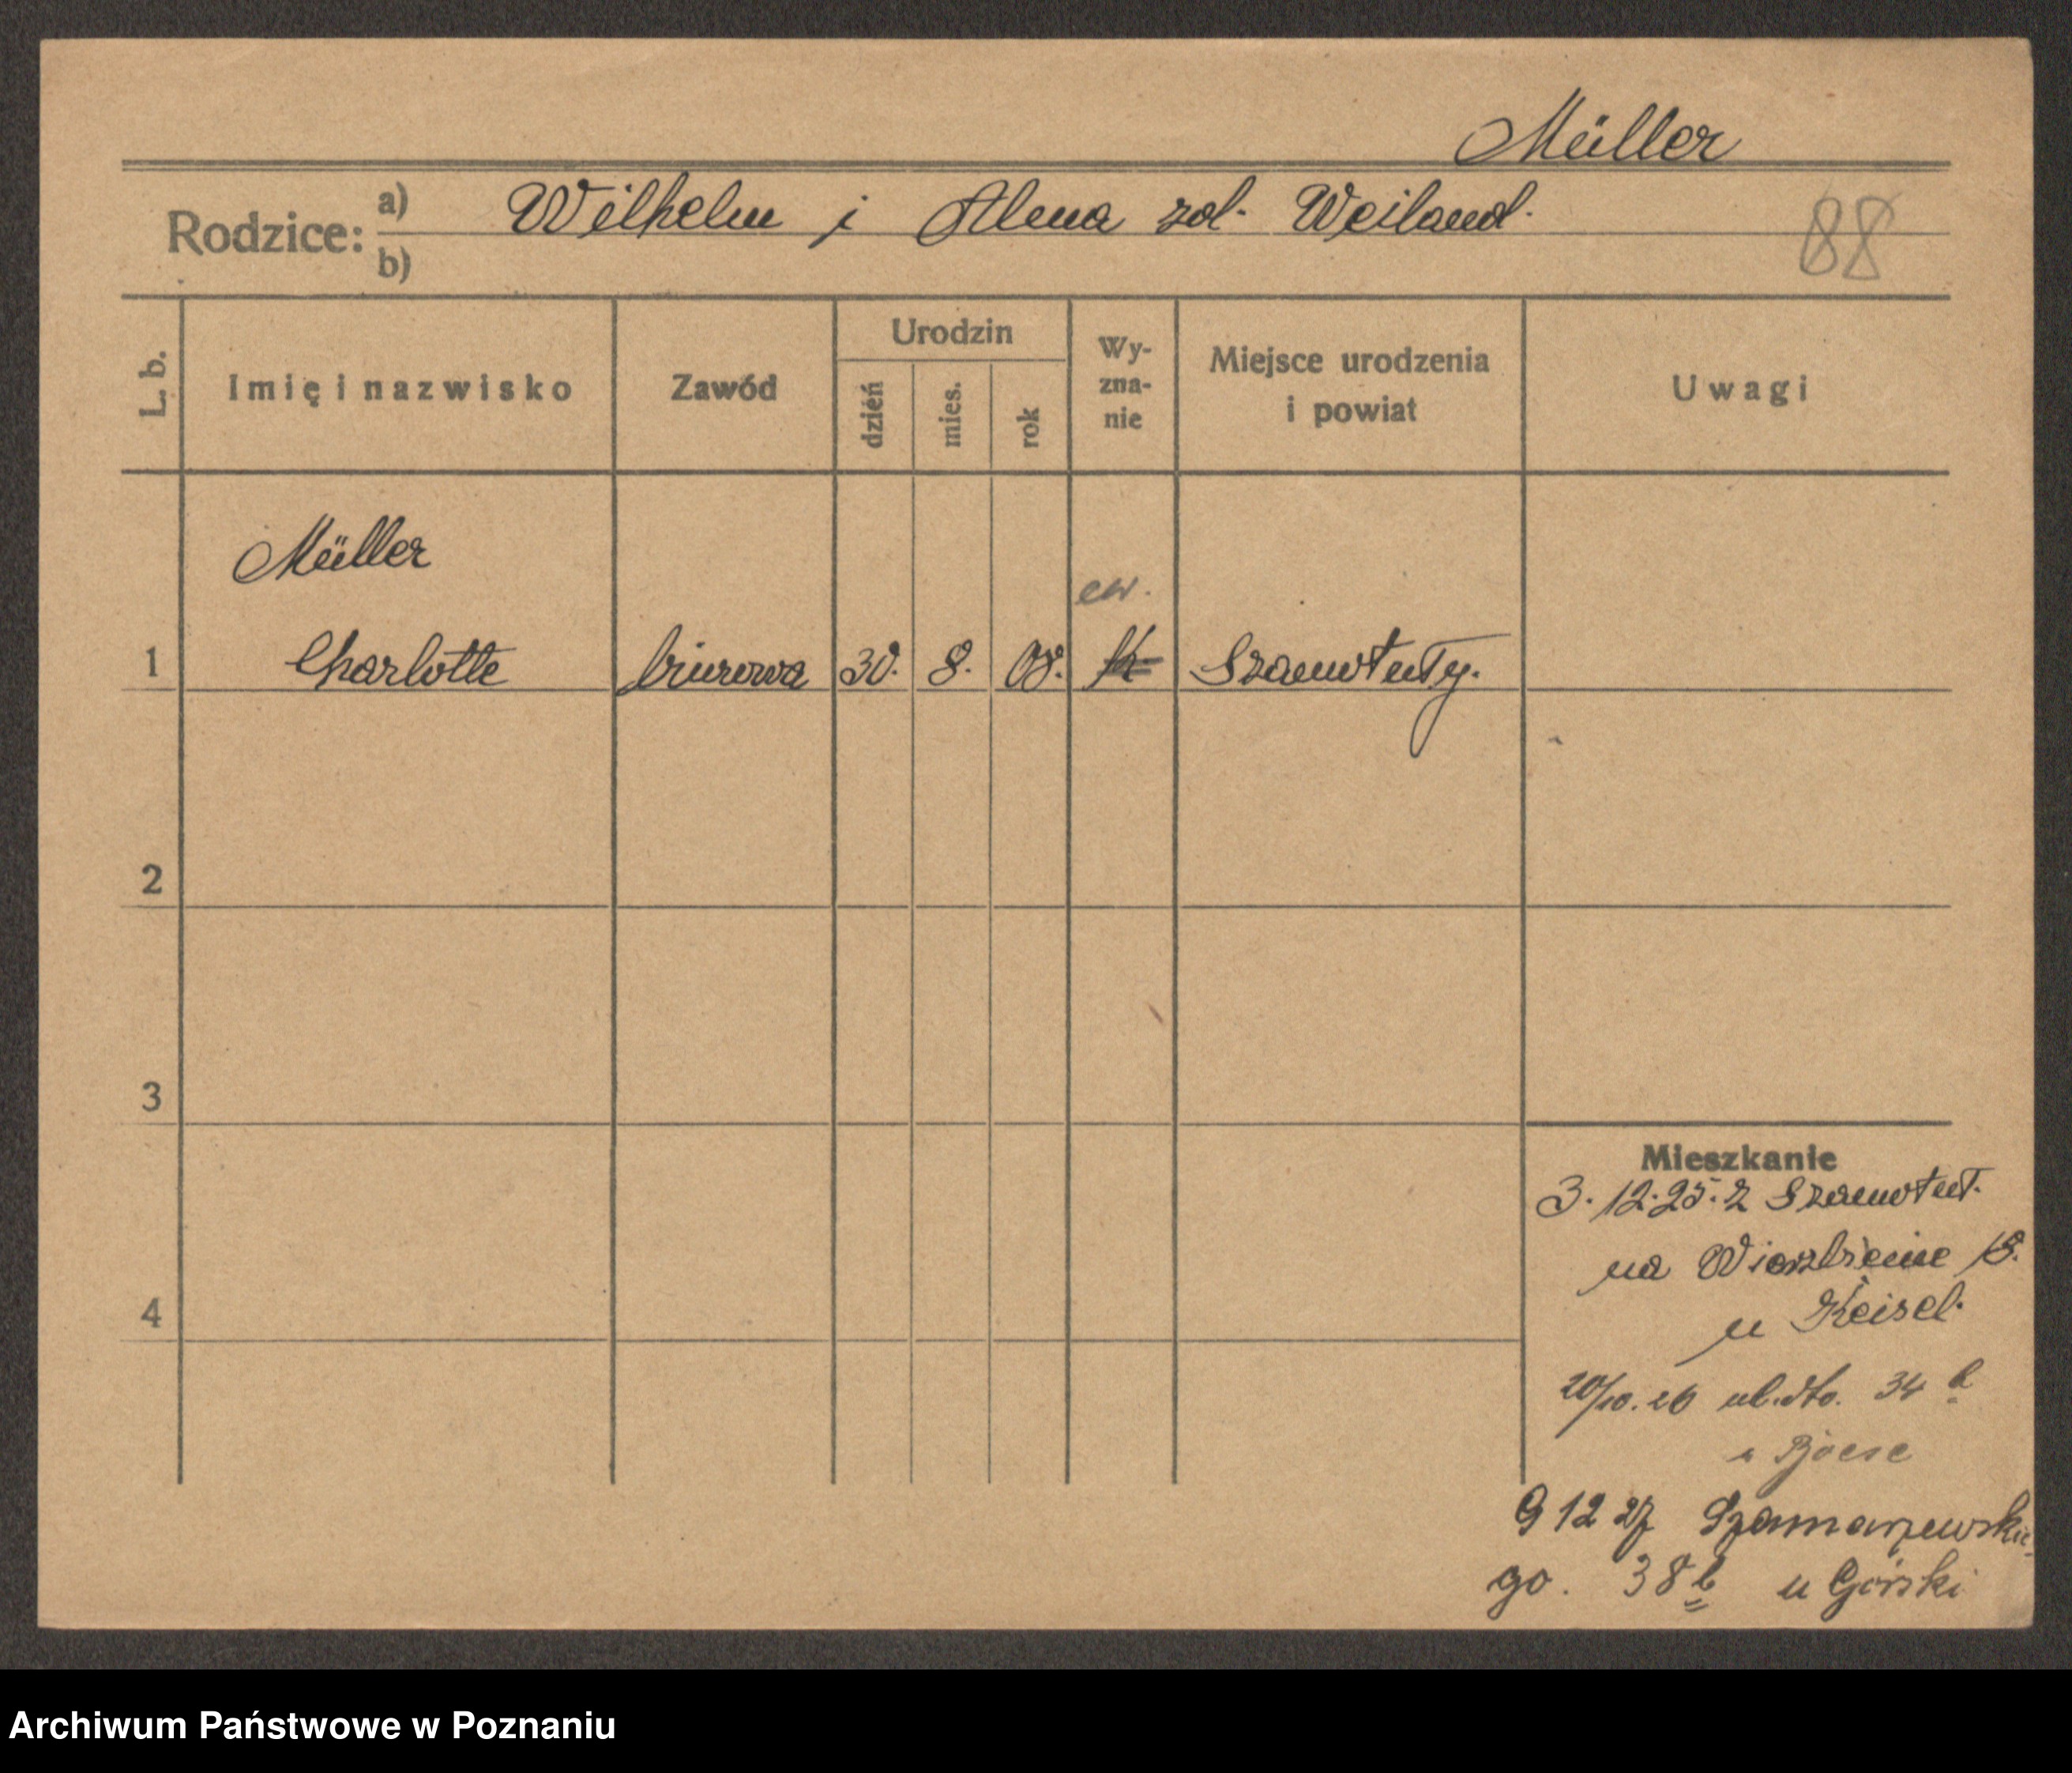 Müller
Rodzice: a) Wilhelm i Alma zd. Weiland.
b)
88
L. b.
Imię i nazwisko
Zawód
Urodzin
dzień
mies.
rok
Wy-
zna-
nie
Miejsce urodzenia
i powiat
Uwagi
Müller
ew.
1 Charlotte biurowa 30. 8. 08. k Szamotuły.
2
3
4
Mieszkanie
3.12.25. z Szamotuł.
na Wierzbięcice 18.
u Keisel.
20/10.26 ul. dto. 34 b
u
9 12 27 Szamarzewskie-
go. 38 b u Górski
Archiwum Państwowe w Poznaniu